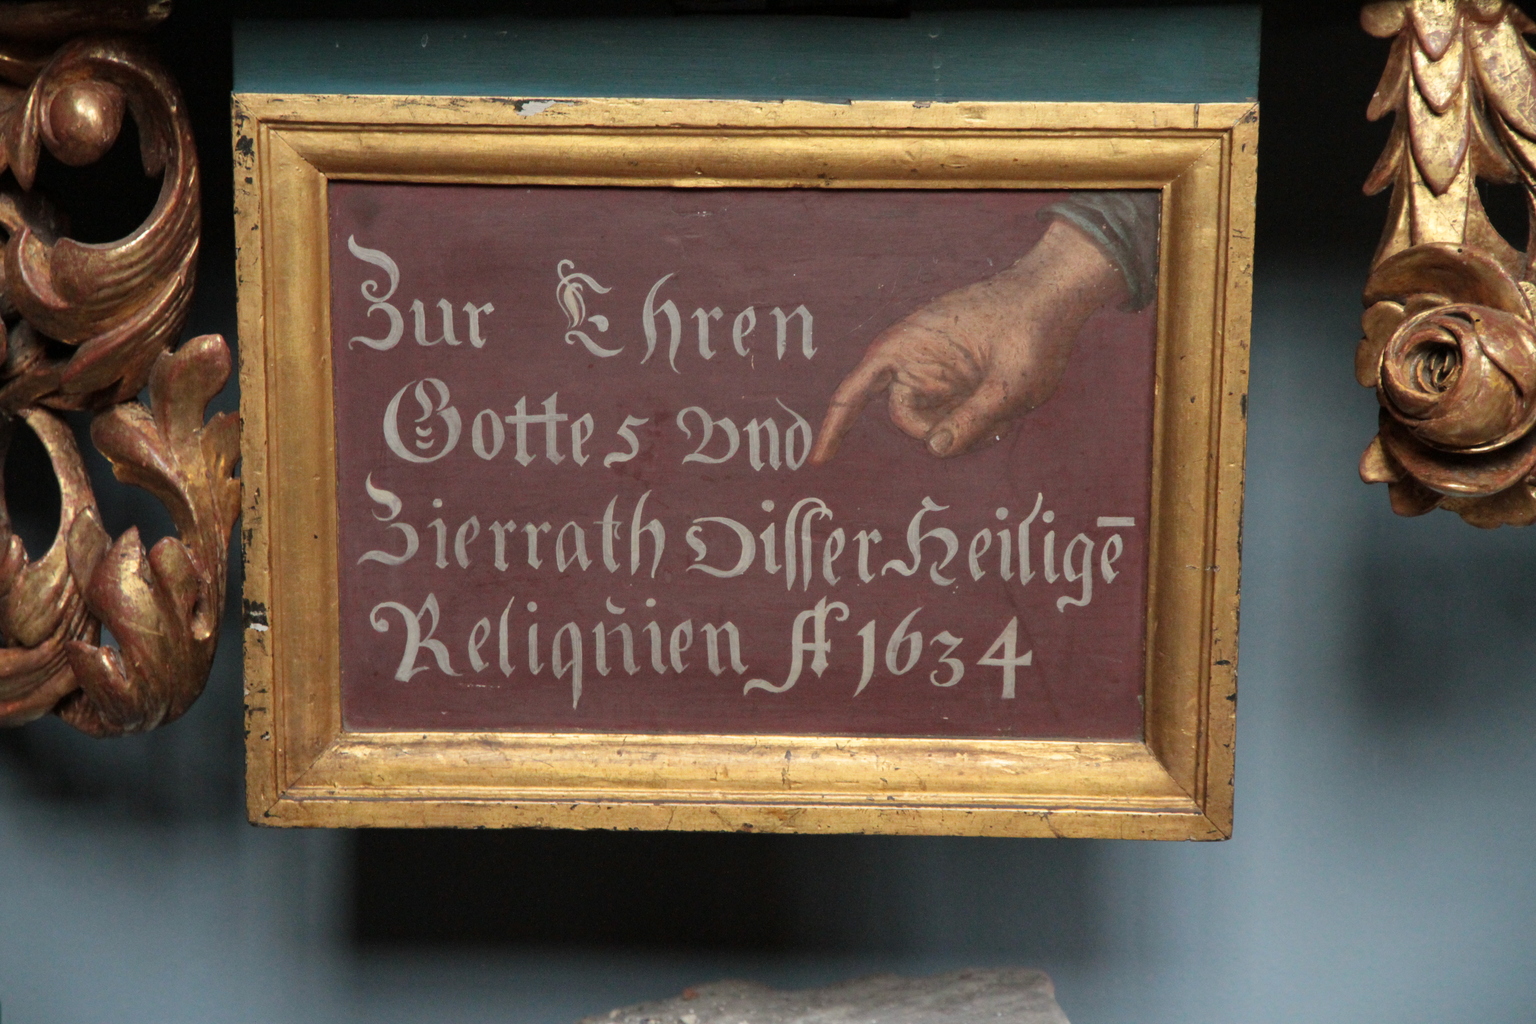 Zur Ehren
Gottes vnd
Zierrath disser Heiligē
Reliqűien A 1634